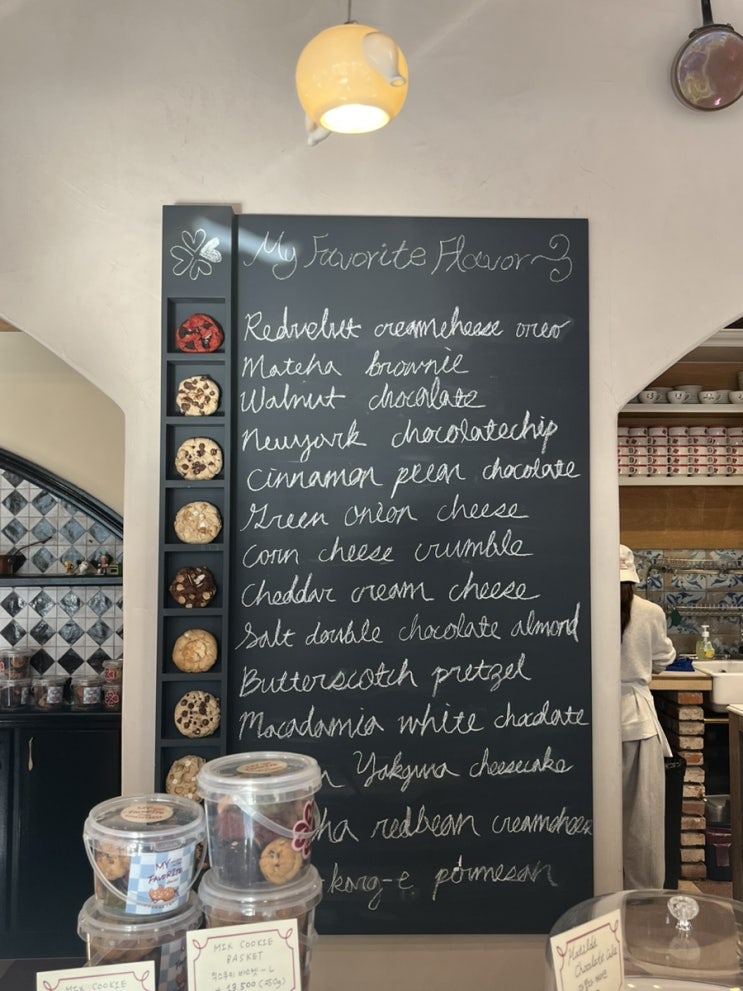 My Favorite Flavor
Redvelvet creamcheese oreo
Matcha brownie
Walnut chocolate
Newyork chocolatechip
Cinnamon pecan chocolate
Green onion cheese
Corn cheese crumble
Cheddar cream cheese
Salt double chocolate almond
Butterscotch pretzel
Macadamia white chocolate
Yakgwa cheesecake
ha redbean creamcheese
korg-e parmesan
MY
FAVORITE
MIX COOKIE
BASKET
13,500 (250g)
MIX COOKIE
Matilda
Chocolate Cake